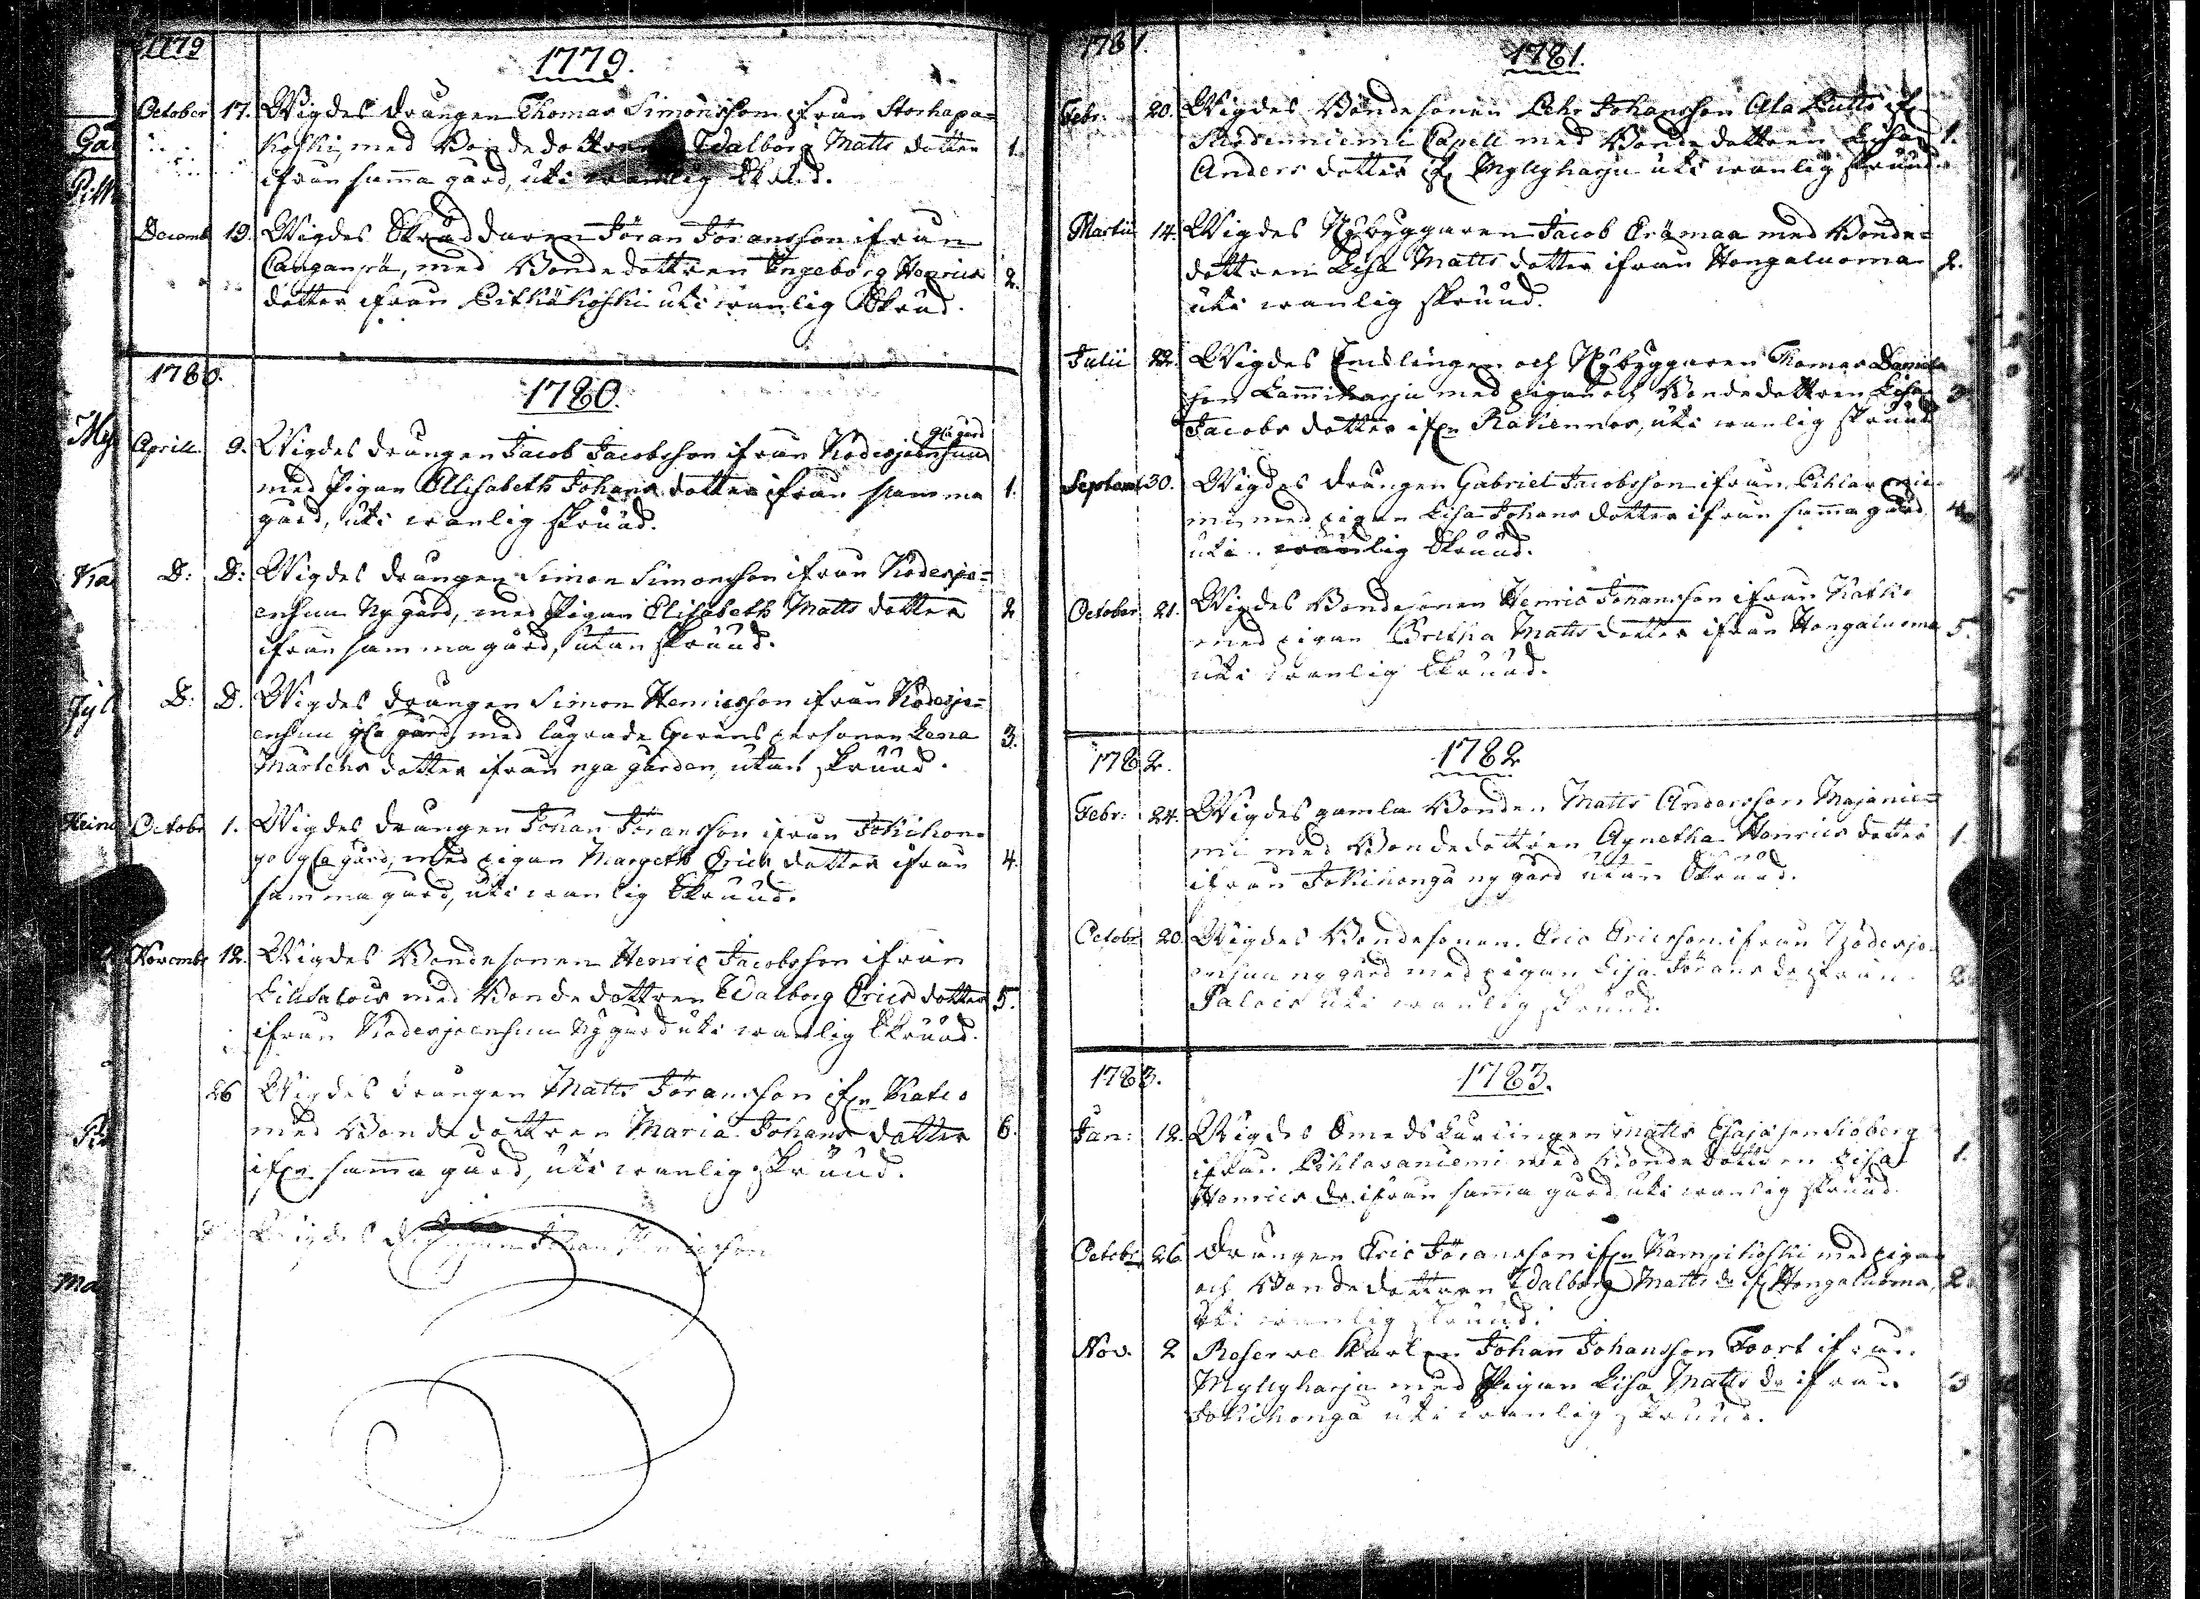 1779
1779.
October 17. Wigdes drängen Thomas Simonsson ifrån Storhapa=
koski, med Bondedottren Walborg Matts dotter 1.
ifrån samma gård, uti wanlig Skrud.
Decemb 19. Wigdes Skräddaren Jöran Jöransson ifrån
med Bondedottren Ingeborg Henrics 2.
dotter ifrån Pitkäkoski uti wanlig Skrud.
1780.
1780.
Aprill. 9. Wigdes drängen Jacob Jacobsson ifrån Kodesjoensuu gla gård
med Pigan Ellisabeth Johans dotter ifrån samma 1.
gård, uti wanlig skruud.
D: D: Wigdes drängen Simon Simonsson ifrån Kodesjo=
ensuu Ny gård, med Pigan Elisabeth Matts dotter 2
ifrån samma gård, utan skruud.
D: D. Wigdes drängen Simon Henricsson ifrån Kodesjo=
ensuu gla gård, med lägrade Qwinspersonen Lena 3.
Martens dotter ifrån nya gården, utan skruud.
Octobr 1. Wigdes drängen Johan Jöransson ifrån Jokihon=
go gla gård, med pigan Margeth Erics dotter ifrån 4.
samma gård, uti wanlig Skruud.
Novembr 12. Wigdes Bondesonen Henric Jacobsson ifrån
med Bondedottren Walborg Erics dotter 5.
ifrån Kodesjoensuu Ny gård uti wanlig Skruud.
26 Wigdes drängen Matts Jöransson ifrn Katko
med Bondedottren Maria Johans dotter 6.
ifrn samma gård, uti wanlig skruud.
Wigdes Johan
1781.
1781.
Febr. 20. Wigdes Bondesonen Pehr Johansson Ala Lutts ifr
Capell med Bondedottren Lisa 1.
Anders dotter ifr Myllyharju uti wanlig skruud.
Martii 14. Wigdes Nybyggaren Jacob Erämaa med Bonde=
dottren Lisa Matts dotter ifrån Hongaluoma 2.
uti wanlig skruud.
Julii 22. Wigdes och Nybyggaren Thomas Daniels
son Lammiharju med pigan och Bondedottren Lisa 3
Jacobs dotter ifrn uti wanlig skruud
Septemb 30. Wigdes drängen Gabriel Jacobsson ifrån Pihlajanie=
mi, med pigan Lisa Johans dotter ifrån samma gård, 4.
uti wanlig Skruud.
October 21. Wigdes Bondesonen Henric Johansson ifrån Katko
med pigan Britha Matts dotter ifrån Hongaluoma 5.
uti wanlig Skruud.
1782.
1782
Febr: 24. Wigdes gamla Bonden Matts Andersson Majanie=
mi med Bondedottren Agnetha Henrics dotter 1
ifrån Jokihonga ny gård utan Skruud.
Octobr 20. Wigdes Bondesonen Eric Ericsson ifrån Kodesjo=
ensuu ny gård med pigan Lisa Jörans dr ifrån 2
Salois uti wanlig skruud.
1783.
1783.
Jan: 12. Wigdes Matts Esajasson Sioberg
ifrån Pihlavaniemi med Bondedottren Lisa 1.
Henrics dr ifrån samma gård uti wanlig skruud.
Octobr 26 drängen Eric Jöransson ifrn Kampikoski med pigan
och Bondedottren Walborg Matts dr ifr Hongaluoma, 2.
uti wanlig skruud.
Nov. 2 Reserve Karlen Johan Johansson Foort ifrån
Myllyharju med Pigan Lisa Matts dr ifrån 3
Jokihonga uti wanlig skruud.